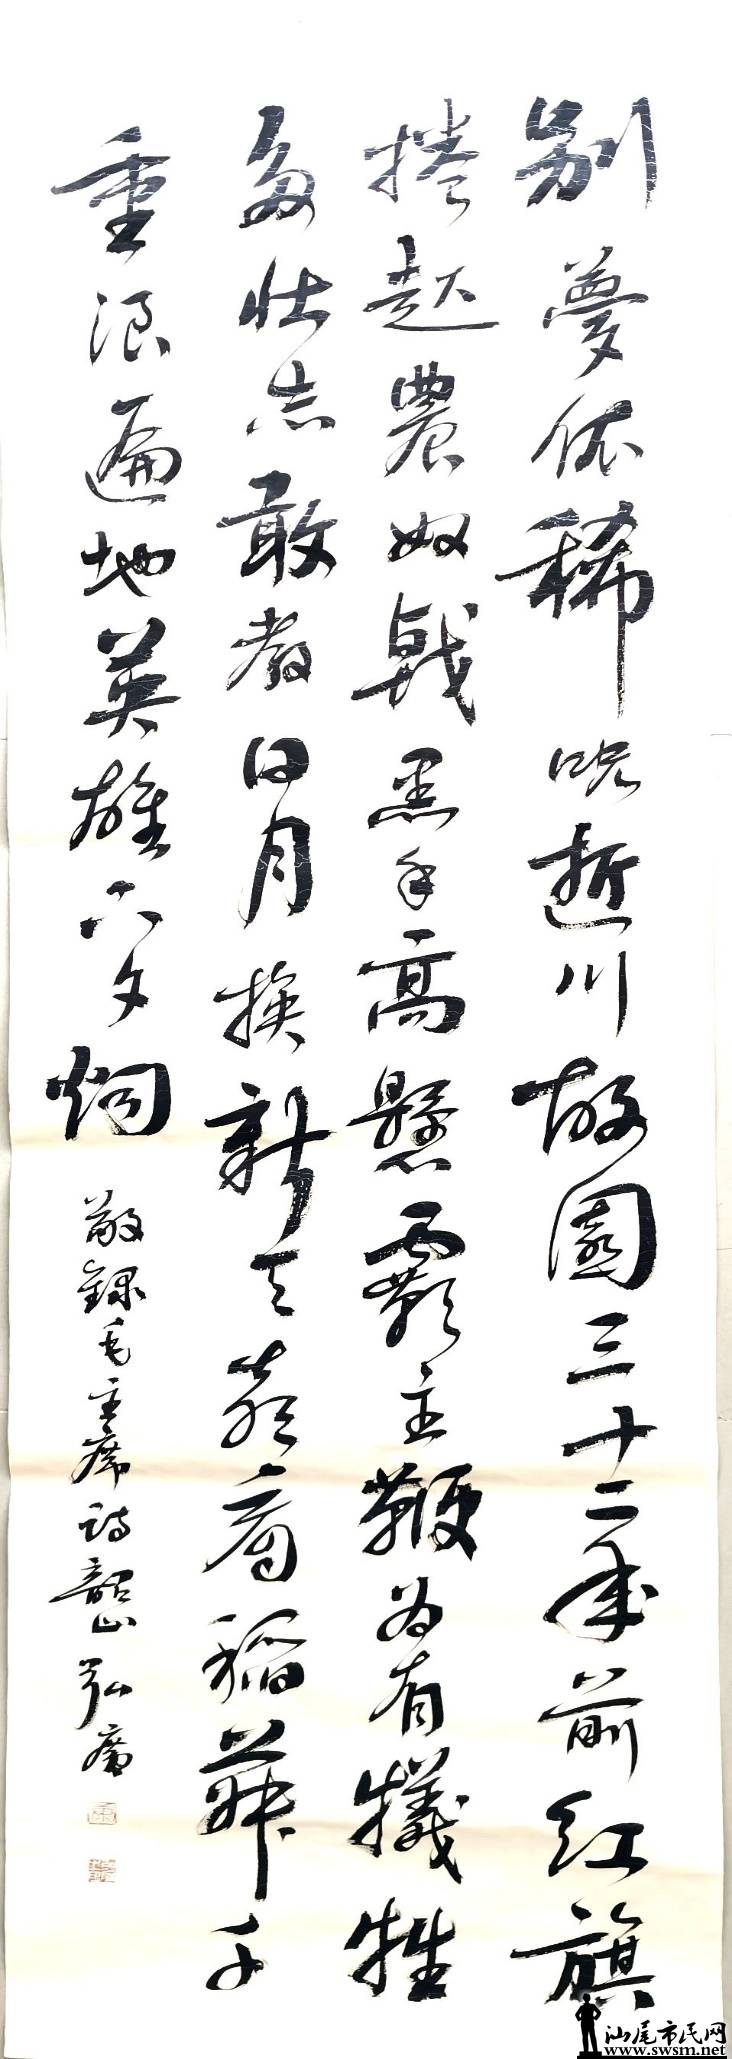 别夢依稀咒逝川故園三十二年前红旗
捲起農奴戟黑手高懸霸主鞭为有犧牲
多壮志敢教日月换新天喜看稻菽千
重浪遍地英雄下夕烟
敬録毛主席詩韶山弘
汕尾市民网
www.swsm.net